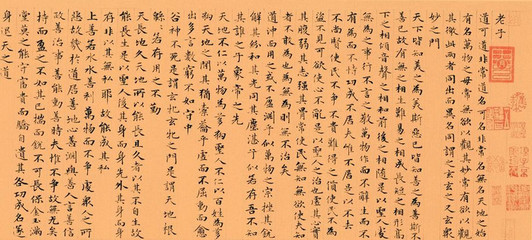 老子
道可道非常道名可名非常名無名天地之始
有名萬物之母常無欲以觀其妙常有欲以觀
其徼此兩者同出而異名同謂之玄玄之又玄衆
妙之門
天下皆知美之為美斯惡已皆知善之為善斯不
善已故有無之相生難易之相成長短之相形高
下之相傾音聲之相和前後之相隨是以聖人處
無為之事行不言之教萬物作而不辭生而不
有為而不恃功成不居夫惟不居是以不去
不尚賢使民不爭不貴難得之貨使民不為盜不見
可欲使心不亂是以聖人之治也虛其心實
其腹弱其志強其骨常使民無知無欲使夫知
者不敢為也為無為則無不治矣
道沖而用之或不盈淵乎似萬物之宗挫其銳
解其紛和其光同其塵湛乎似或存吾不知
其誰之子象帝之先
天地不仁以萬物為芻狗聖人不仁以百姓為芻
狗天地之間其猶橐籥乎虛而不屈動而愈
出多言數窮不如守中
谷神不死是謂玄牝玄牝之門是謂天地根
綿綿若存用之不勤
天長地久天地所以能長且久者以其不自生故
能長生是以聖人後其身而身先外其身而身
存非以其無私邪故能成其私
上善若水水善利萬物而不爭處衆人之所
惡故幾於道居善地心善淵與善人言善信
政善治事善能動善時夫惟不爭故無尤矣
持而盈之不如其已揣而銳之不可長保金玉滿
堂莫之能守富貴而驕自遺其咎功成名遂
身退天之道